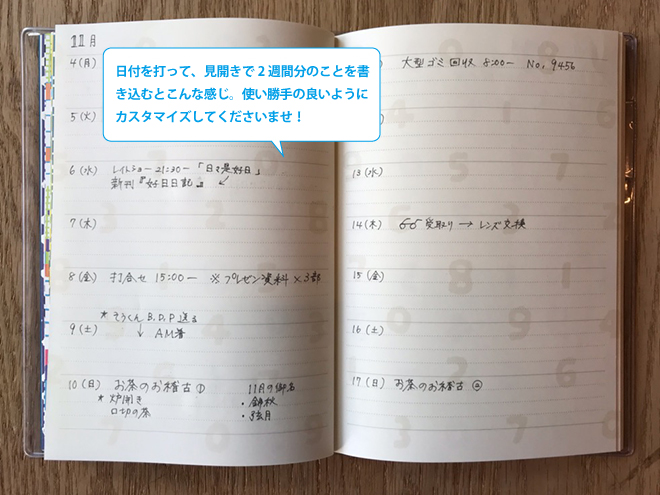 11月
4(月)
日付を打って、見開きで2週間分のことを書
き込むとこんな感じ。使い勝手の良いように
カスタマイズしてくださいませ！
5(火)
6(水) レイトショー 21:30〜「日々是好日」
新刊『好日日記』↙
7(木)
8(金) 打合せ 15:00〜 ※プレゼン資料×3部
* そうくん B.D.P 送る
↓ AM着
9(土)
10(日) お茶のお稽古①
* 炉開き
口切の茶
11月の御名
・錦秋
・弦月
大型ゴミ回収 8:00〜 No. 9456
13(水)
14(木) 受取り→レンズ交換
15(金)
16(土)
17(日) お茶のお稽古②